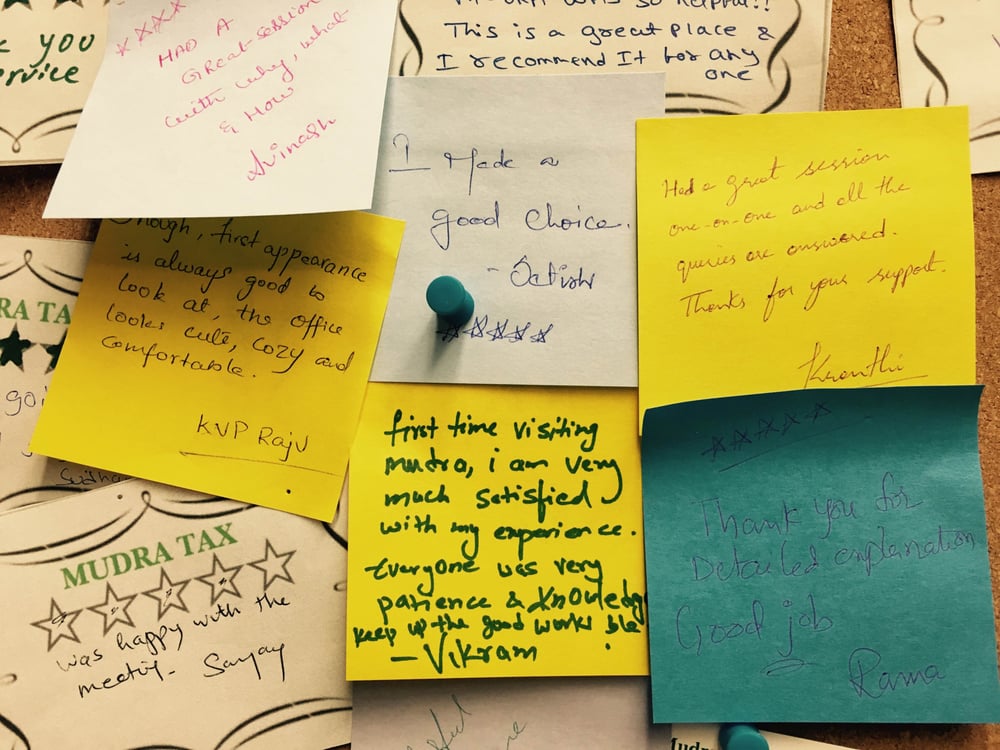 YOU
ervice
HAD A
Great session
with why, what
& How
Avinash
was so helpful!!
This is a great place &
I recommend It for any
one
I Made a
good choice.
- Satish
Had a great session
one-on-one and all the
queries are answered.
Thanks for your support.
Kranthi
though, first appearance
is always good to
look at, the office
looks cute, cozy and
comfortable.
KVP Raju
RA TA
first time visiting
mudra, i am very
much satisfied
with my experience.
Everyone was very
patience & knowledg
ble
keep up the good works
- Vikram
Thank you for
Detailed explanation
Good job
Rama
MUDRA TAX
was happy with the
meeting. Sanjay
Mudr